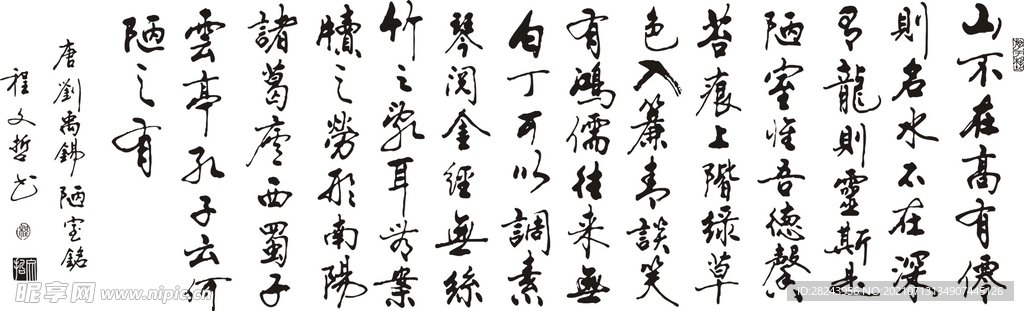 山不在高有僊
則名水不在深
有龍則靈斯是
陋室惟吾德馨
苔痕上階緑草
色入簾青談笑
有鴻儒往来無
白丁可以調素
琴閲金經無絲
竹之亂耳無案
牘之勞形南陽
諸葛廬西蜀子
雲亭孔子云何
陋之有
唐劉禹錫陋室銘
程文哲书
昵享网 www.nipic.cn
ID:28243956 NO:20210713134907445126